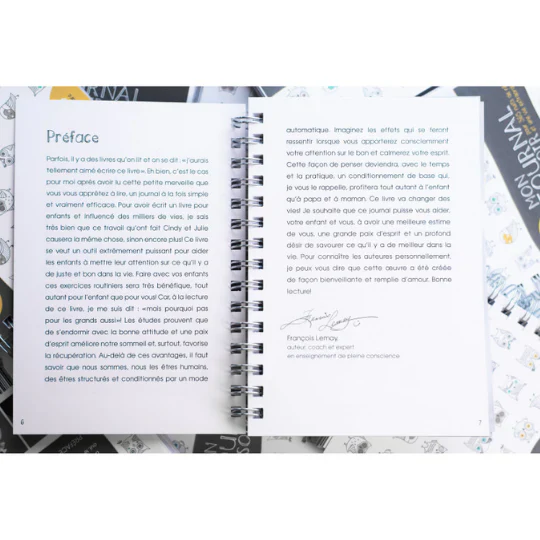 Préface
Parfois, il y a des livres qu'on lit et on se dit : «j'aurais
tellement aimé écrire ce livre». Eh bien, c'est le cas
pour moi après avoir lu cette petite merveille que
vous vous apprêtez à lire, un journal à la fois simple
et vraiment efficace. Pour avoir écrit un livre pour
enfants et influencé des milliers de vies, je sais
très bien que ce travail qu'ont fait Cindy et Julie
causera la même chose, sinon encore plus! Ce livre
se veut un outil extrêmement puissant pour aider
les enfants à mettre leur attention sur ce qu'il y a
de juste et bon dans la vie. Faire avec vos enfants
ces exercices routiniers sera très bénéfique, tout
autant pour l'enfant que pour vous! Car, à la lecture
de ce livre, je me suis dit : «mais pourquoi pas
pour les grands aussi»! Les études prouvent que
de s'endormir avec la bonne attitude et une paix
d'esprit améliore notre sommeil et, surtout, favorise
la récupération. Au-delà de ces avantages, il faut
savoir que nous sommes, nous les êtres humains,
des êtres structurés et conditionnés par un mode
6
automatique. Imaginez les effets qui se feront
ressentir lorsque vous apporterez consciemment
votre attention sur le bon et calmerez votre esprit.
Cette façon de penser deviendra, avec le temps
et la pratique, un conditionnement de base qui,
je vous le rappelle, profitera tout autant à l'enfant
qu'à papa et à maman. Ce livre va changer des
vies! Je souhaite que ce journal puisse vous aider,
votre enfant et vous, à avoir une meilleure estime
de vous, une grande paix d'esprit et un profond
désir de savourer ce qu'il y a de meilleur dans la
vie. Pour connaître les auteures personnellement,
je peux vous dire que cette œuvre a été créée
de façon bienveillante et remplie d'amour. Bonne
lecture!
François Lemay,
auteur, coach et expert
en enseignement de pleine conscience
7
MON JOURNAL